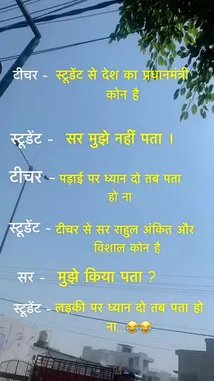 टीचर - स्टूडेंट से देश का प्रधानमंत्री
कोन है
स्टूडेंट - सर मुझे नहीं पता ।
टीचर - पड़ाई पर ध्यान दो तब पता
हो ना
स्टूडेंट - टीचर से सर राहुल अंकित और
विशाल कोन है
सर - मुझे किया पता ?
स्टूडेंट - लड़की पर ध्यान दो तब पता हो
ना...😂😂